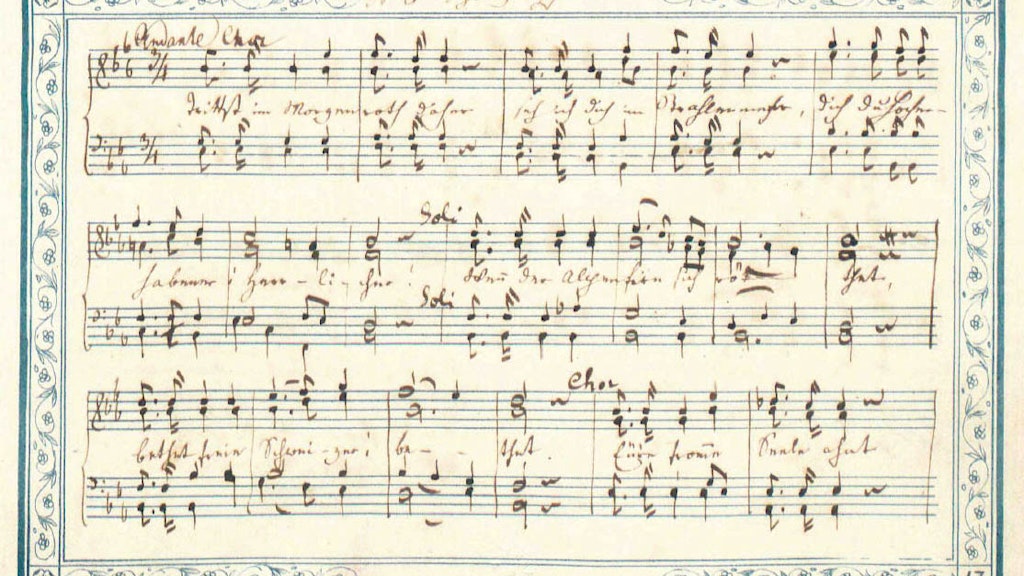 Andante Chor
trittst im Morgenroth daher seh ich dich im Strahlenmehr, dich du Hocher-
Soli
habener! Herr-li-cher! Wenn der Alpenfirn sich rö- thet,
Soli
Chor
bethet freie Schwei-zer! be- - thet. Eure fromme Seele ahnt